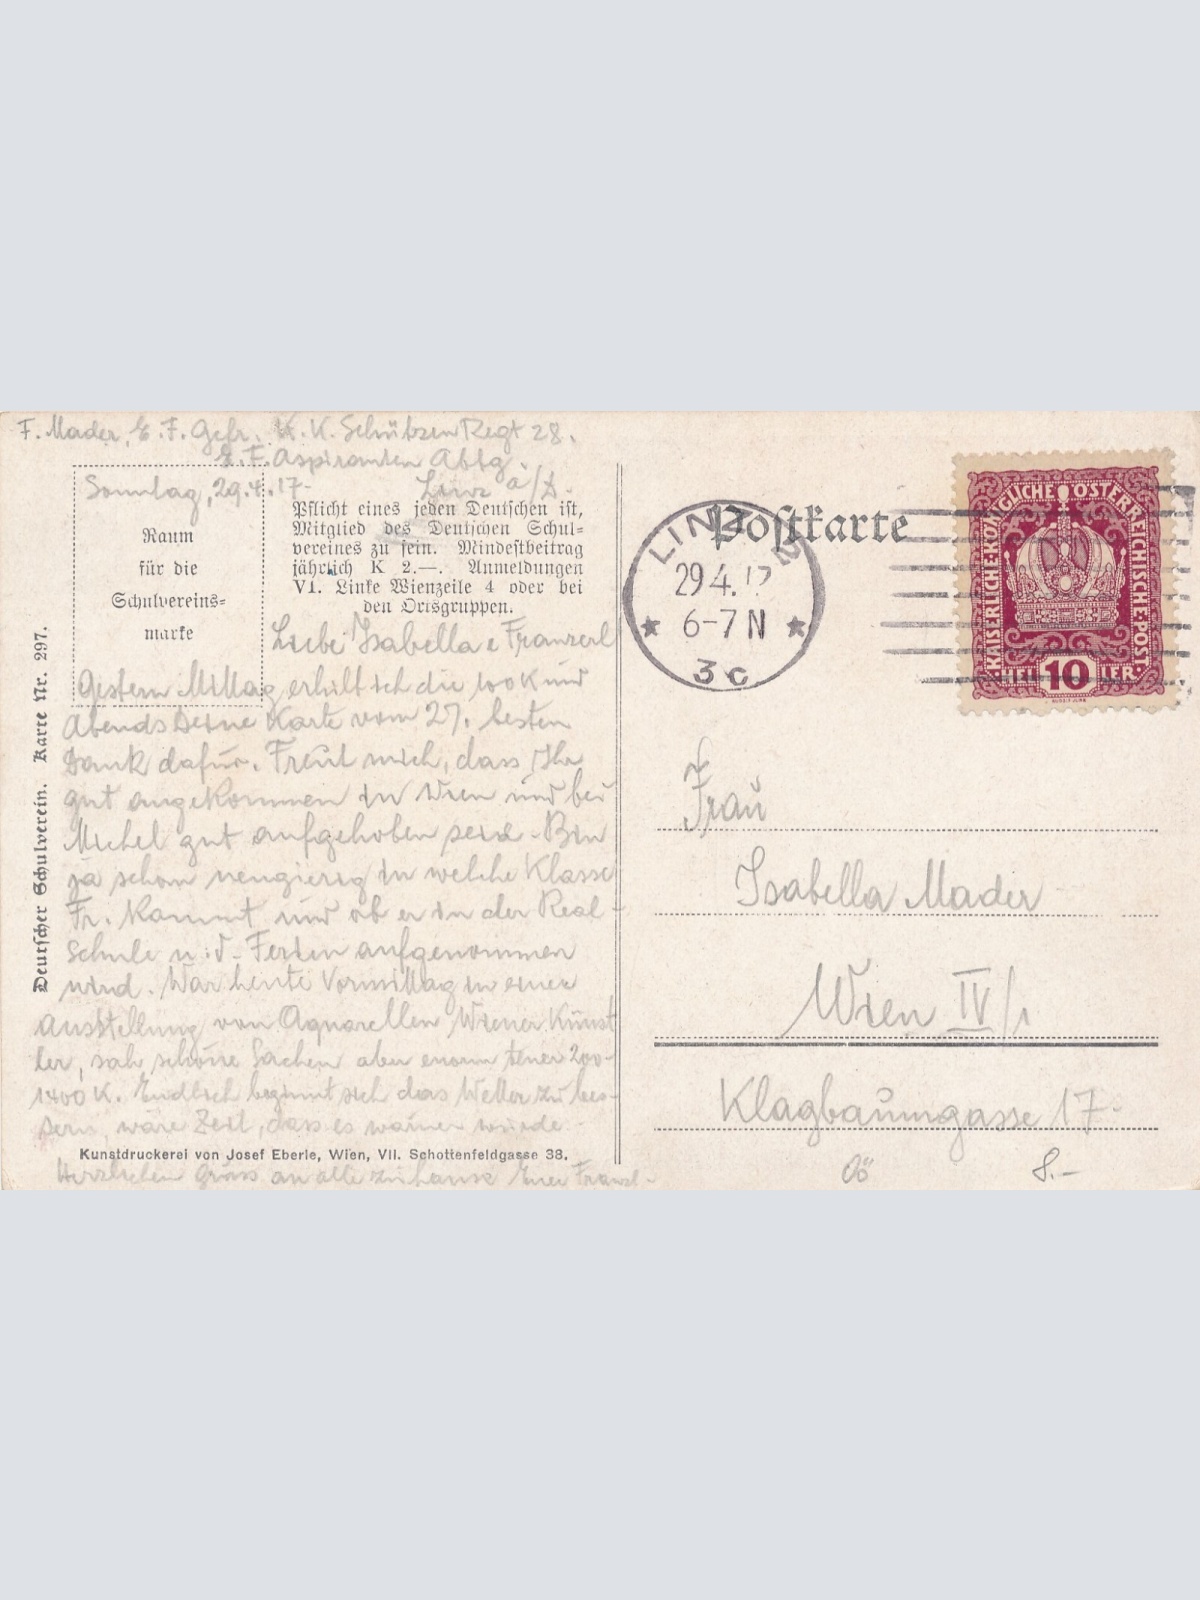 F. Mader, E. F. Gefr. K. K. Schützen Regt 28.
E. F. Aspiranten Abtlg.
Sonntag, 29.4.17- Linz a/D.
Raum
für die
Schulvereins-
marke
Pflicht eines jeden Deutschen ist,
Mitglied des Deutschen Schul-
vereines zu sein. Mindestbeitrag
jährlich K 2.—. Anmeldungen
VI. Linke Wienzeile 4 oder bei
den Ortsgruppen.
Liebe Isabella e Franzerl
Gestern Mittag erhielt ich die 100 K und
Abends Deine Karte vom 27. besten
Dank dafür. Freut mich, dass Ihr
gut angekommen in Wien und bei
Michel gut aufgehoben seid - Bin
ja schon neugierig in welche Klasse
Fr. kommt und ob er in der Real-
schule n. d. Ferien aufgenommen
wird. War heute Vormittag in einer
Ausstellung von Aquarellen Wiener Künst
ler, sah schöne Sachen aber enorm teuer 200-
1400 K. Endlich beginnt sich das Wetter zu bes-
sern, wäre Zeit, dass es wärmer würde -
Kunstdruckerei von Josef Eberle, Wien, VII. Schottenfeldgasse 38.
Herzlichen Gruss an alle zu hause Euer Franzl-
Deutscher Schulverein. Karte Nr. 297.
Postkarte
LINZ 2
29.4.17
6-7 N
3c
KAISERLICHE·KÖNIGLICHE ÖSTERREICHISCHE·POST·
HELLER 10 HELLER
Frau
Isabella Mader
Wien IV/1
Klagbaumgasse 17-
OÖ
8.-